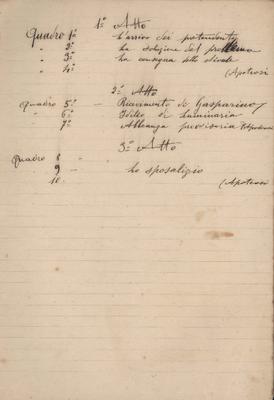 1º Atto
Quadro 1º L'arrivo dei pretendenti
" 2º La soluzione del problema
" 3º La consegna dello stivale
" 4º (Apoteosi
2º Atto
Quadro 5º — Ricevimento di Gasparino
" 6º Idilio di Luminaria
" 7º Alleanza provvisoria
3º Atto
Quadro 8 "
9 — Lo sposalizio
10 (Apoteosi